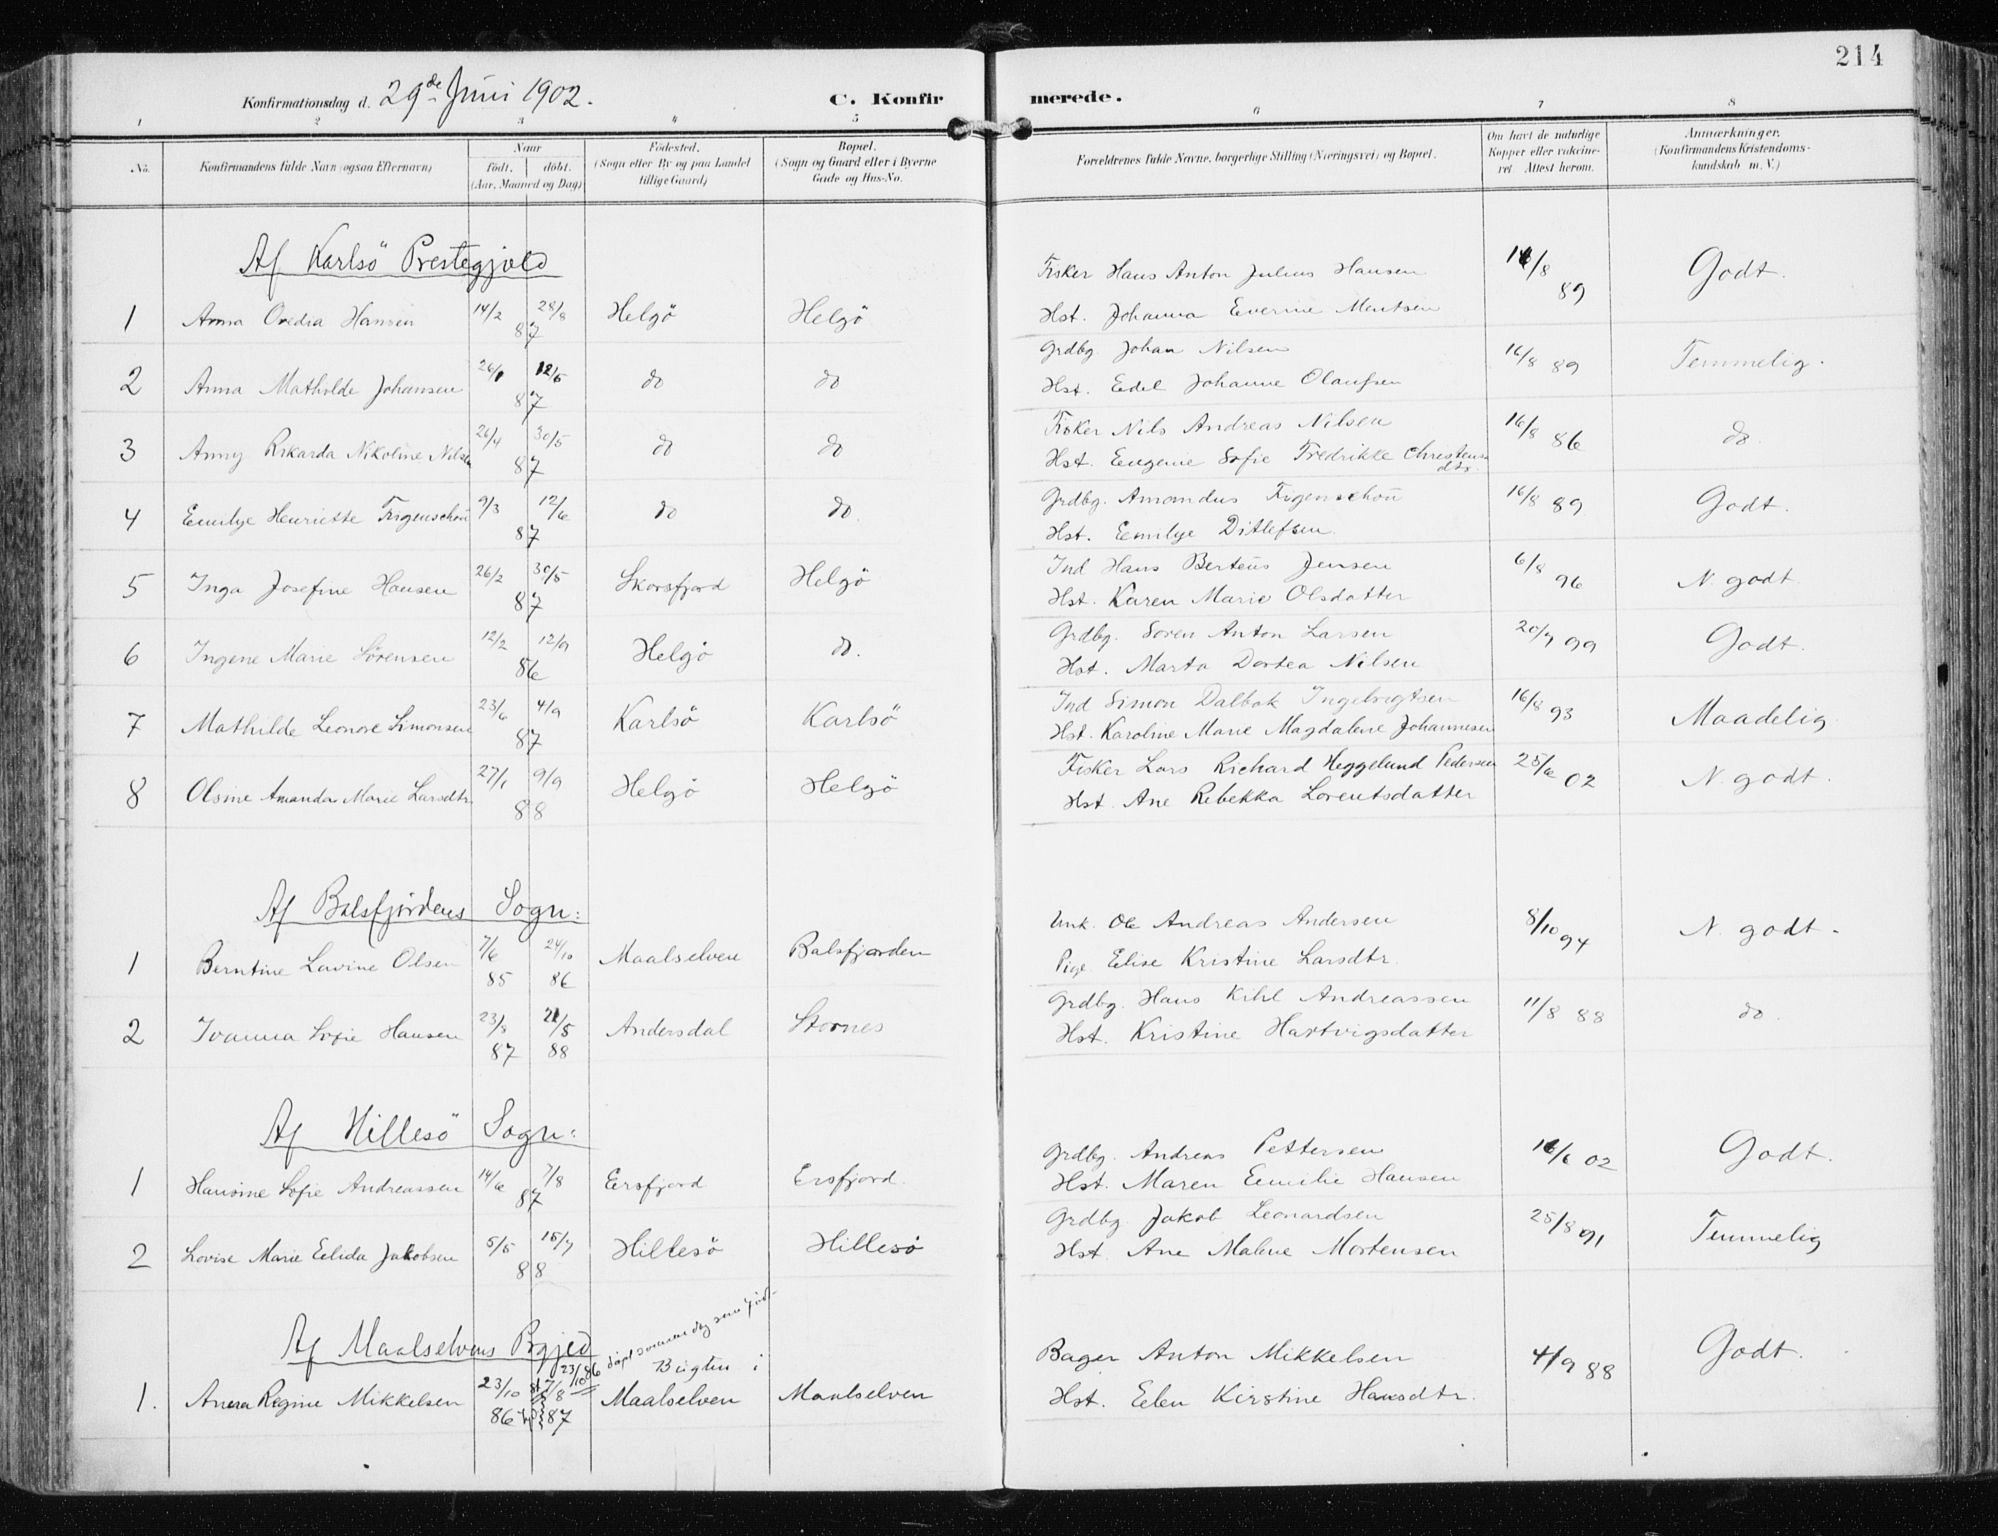 214
Konfirmationsdag d. 29de Juni 1902.
C. Konfirmerede.
1 2 3 4 5 6 7 8
No.
Konfirmandens fulde Navn (ogsaa Efternavn)
Naar
født. døbt.
(Aar, Maaned og Dag)
Fødested.
(Sogn eller By og paa Landet
tillige Gaard)
Bopæl.
(Sogn og Gaard eller i Byerne
Gade og Hus-No.
Forældrenes fulde Navne, borgerlige Stilling (Næringsvei) og Bopæl.
Om havt de naturlige
Kopper eller vakcine-
ret. Attest herom.
Anmærkninger.
(Konfirmandens Kristendoms-
kundskab m. V.)
Af Karlsö Prestegjæld
1 Anna Ovedia Hansen 14/2 28/8 87 Helgö Helgö Fisker Hans Anton Julius Hansen 89 Godt.
Hst. Johanna Everine Mentsen
2 Anna Mathilde Johansen 26/1 87 do do Grdbg. Johan Nilsen 16/8 89 Temmelig.
Hst. Edel Johanne Olaufsen
3 Anny Rikarda Nikoline Nilsen 26/4 30/5 87 do do Fisker Nils Andreas Nilsen 16/8 86 do.
Hst. Eugenie Sofie Fredrikke Christensdtr.
4 Emilye Henriette Figenschou 9/3 12/6 87 do do. Grdbg. Amandus Figenschou 16/8 89 Godt.
Hst. Emilye Ditlefsen.
5 Inga Josefine Hansen 26/2 30/5 87 Skorsfjord Helgö Ind Hans Berteus Jensen 6/8 96 N. godt.
Hst. Karen Marie Olsdatter
6 Ingene Marie Sörensen 12/2 12/9 86 Helgö do. Grdbg. Soren Anton Larsen 20/7 99 Godt.
Hst. Marta Dortea Nilsen
7 Mathilde Leonore Simonsen 23/6 4/9 87 Karlsö Karlsö Ind Simon Dalbak Ingebrigtsen 16/8 93 Maadelig.
Hst. Karoline Marie Magdalene Johannesen
8 Olsine Amanda Marie Larsdtr. 27/1 9/9 88 Helgö Helgö Fisker Lars Richard Heggelund Pedersen 25/6 02 N. godt.
Hst. Ane Rebekka Lorentsdatter
Af Balsfjordens Sogn:
1 Berntine Lavine Olsen 7/6 85 24/10 86 Maalselven Balsfjorden Unk. Ole Andreas Andersen 8/10 94 N. godt.
Pige Elise Kristine Larsdtr.
2 Ivanna Sofie Hansen 23/8 87 21/5 88 Andersdal Stornes Grdbg. Hans Kihl Andreassen 11/8 88 do.
Hst. Kristine Hartvigsdatter
Af Hillesö Sogn:
1 Hansine Sofie Andreassen 14/6 7/8 87 Ersfjord Ersfjord. Grdbg. Andreas Pettersen 02 Godt.
Hst. Maren Emilie Hansen
2 Lovise Marie Elida Jakobsen 5/5 15/7 88 Hillesö Hillesö Grdbg. Jakob Leonardsen 25/8 91 Temmelig
Hst. Ane Malene Mortensen
Af Maalselvens Pgjed
23/10 86 döpt samme dag som född
1. Anna Regine Mikkelsen 23/10 86 7/8 87 Bugten i Maalselven Maalselven Bager Anton Mikkelsen 4/9 88 Godt.
Hst. Elen Kirstine Hansdtr.